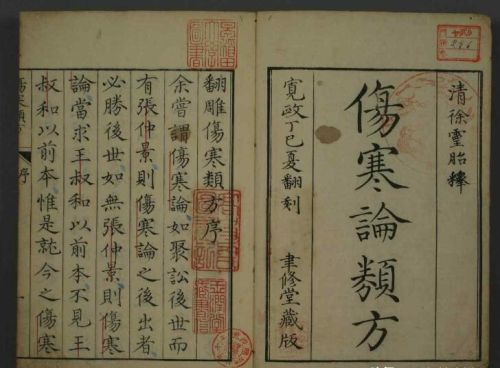 清徐靈胎釋
傷寒論類方
寬政丁巳夏翻刻
聿修堂藏版
翻雕傷寒類方序
余嘗謂傷寒論如聚訟後世而
有張仲景則傷寒論之後出者
必勝後世如無張仲景則傷寒
論當求王叔和以前本不見王
叔和以前本惟是就今之傷寒
傷寒類方
序